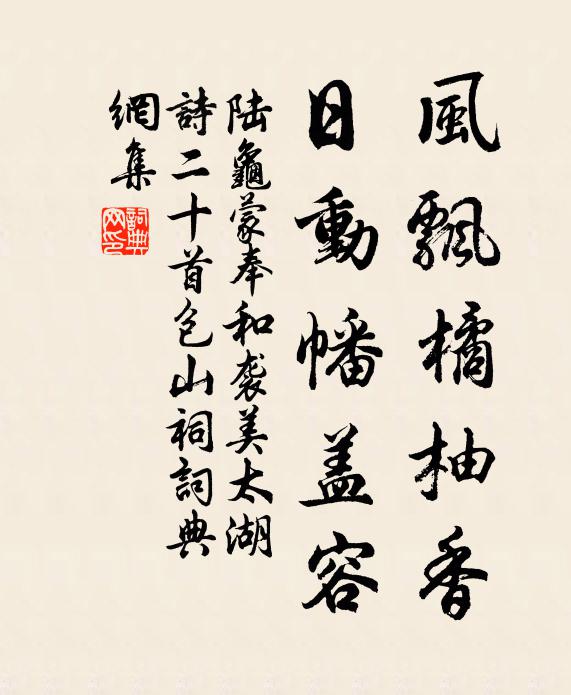 風飄橘柚香
日動幡盖容
陆龜蒙奉和袭美太湖
詩二十首包山祠詞典
網集
詞典网印